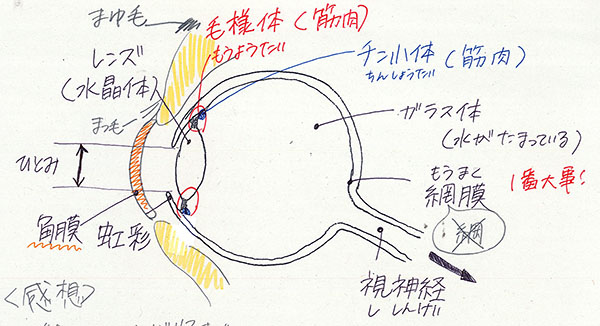 まゆ毛
毛様体(筋肉)
もうようたい
レンズ
(水晶体)
チン小体(筋肉)
ちんしょうたい
まつ毛
ガラス体
(水がたまっている)
ひとみ
もうまく
網膜
1番大事!
角膜
虹彩
視神経
し しんけい
<感想>